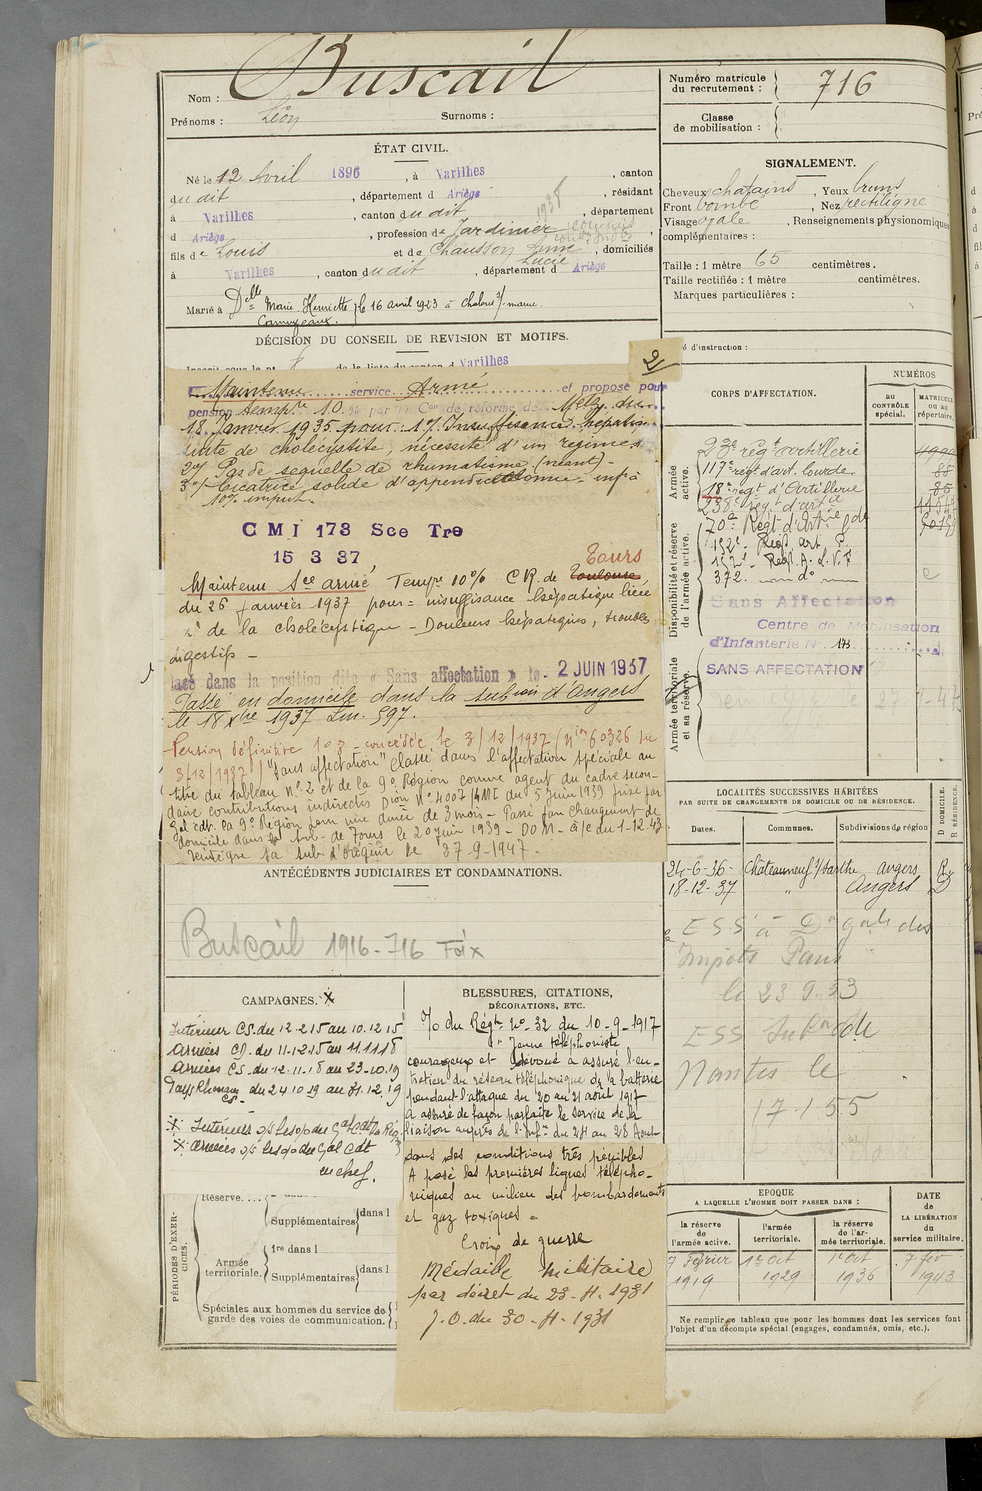 Nom : Buscail
Prénoms : Léon Surnoms :
ÉTAT CIVIL.
Né le 12 Avril 1896, à Varilhes, canton
du dit, département d Ariège, résidant
à Varilhes, canton du dit, département
d Ariège, profession de Jardinier
fils de Louis et de Chausson Anne Lucie, domiciliés
à Varilhes, canton du dit, département d Ariège
Marié à Delle Marie Henriette le 16 avril 1923 à chalons s/ marne.
DÉCISION DU CONSEIL DE REVISION ET MOTIFS.
de la liste du canton d Varilhes
2/
Maintenu service Armé et proposé pour
pension tempre 10 % par Con de réforme de Metz du
18 Janvier 1935 pour : 1°/ Insuffisance hépatique
suite de cholécystite, nécessité d'un régime.
2°/ Pas de sequelle de rhumatisme (néant) -
3°/ Cicatrice solide d'appendicectomie - inf à
10% imput.
CMI 173 Sce Tre
15 3 37
Tours
Maintenu Sce armé Tempre 10% CR. de Toulouse
du 26 janvier 1937 pour = insuffisance hépatique liée
à de la cholécystique - Douleurs hépatiques, troubles
digestifs -
lacé dans la position dite « Sans affectation » le 2 JUIN 1937
Passé en domicile dans la subon d'Angers
le 18 Xbre 1937
Pension définitive 10% - concédée le 3/12/1937
3/12/1937) "Sans affectation" Classé dans l'affectation spéciale au
titre du tableau n° 2 et de la 9e Région comme agent du cadre secon-
daire contributions indirectes Don N° 4007/4MI du 5 Juin 1939 prise par
Gal cdt. la 9e Région pour une durée de 3 mois - Passé par changement de
domicile dans la sub. de Tours le 20 juin 1939
réintègre sa sub. d'origine le 27-9-1947.
ANTÉCÉDENTS JUDICIAIRES ET CONDAMNATIONS.
Buscail 1916-716 Foix
CAMPAGNES. X
Intérieur CS. du 12-2-15 au 10.12.15
Armées CD. du 11-12-15 au 11.11.18
Armées CS. du 12-11-18 au 23-10.19
Pays Rhénans CS. du 24 10 19 au 31.12.19
X Intérieurs
X Armées o/s les o/o du Gal Cdt
en chef.
Réserve....
Supplémentaires dans l
Armée territoriale.
1re dans l
Supplémentaires dans l
Spéciales aux hommes du service de
garde des voies de communication.
PÉRIODES D'EXER-
CICES.
BLESSURES, CITATIONS,
DÉCORATIONS, ETC.
O/o du Régt n° 32 du 10-9-1917
" Jeune téléphoniste
courageux et dévoué a assuré l'en-
tretien du réseau téléphonique de la batterie
pendant l'attaque du 20 au 21 août 1917
A assuré de façon parfaite le service de la
liaison auprès de l'Infie du 24 au 28 Aout
dans des conditions très pénibles
A posé les premières lignes télépho-
niques au milieu des bombardements
et gaz toxiques =
Croix de guerre
Médaille Militaire
par décret du 23-4-1931
J.O. du 30-4-1931
Numéro matricule
du recrutement : 716
Classe
de mobilisation :
SIGNALEMENT.
Cheveux chatains, Yeux bruns
Front bombé, Nez rectiligne
Visage ovale, Renseignements physionomiques
complémentaires :
Taille : 1 mètre 65 centimètres.
Taille rectifiée : 1 mètre centimètres.
Marques particulières :
é d'instruction :
CORPS D'AFFECTATION.
NUMÉROS
au
CONTRÔLE
spécial.
MATRICULE
ou au
répertoire.
Armée
active.
23e régt artillerie
117e régt d'art. lourde 88
18e régt d'Artillerie 85
238e régt d'artie
Disponibilité et réserve
de l'armée active.
70e Régt d'Artie
152e Régt art. P.
152e Regt A. L. V. F
372. d°
Sans Affectation
Centre de Mobilisation
d'Infanterie N° 173
SANS AFFECTATION
Armée territoriale
et sa réserve.
LOCALITÉS SUCCESSIVES HABITÉES
PAR SUITE DE CHANGEMENTS DE DOMICILE OU DE RÉSIDENCE.
D DOMICILE.
R RÉSIDENCE.
Dates. Communes. Subdivisions de région
24-6-36- Châteauneuf s/ sarthe angers R
18-12-37 " Angers D
E S S à Don gale des
Impots Paris
le 23 9.53
ESS Subon de
Nantes le
17-1-55
EPOQUE
A LAQUELLE L'HOMME DOIT PASSER DANS :
la réserve
de
l'armée active.
l'armée
territoriale.
la réserve
de l'ar-
mée territoriale.
DATE
de
LA LIBÉRATION
du
service militaire.
7 Février 1919
1er Oct 1929
1er Oct 1936
7 fév 1943
Ne remplir ce tableau que pour les hommes dont les services font
l'objet d'un décompte spécial (engagés, condamnés, omis, etc.).